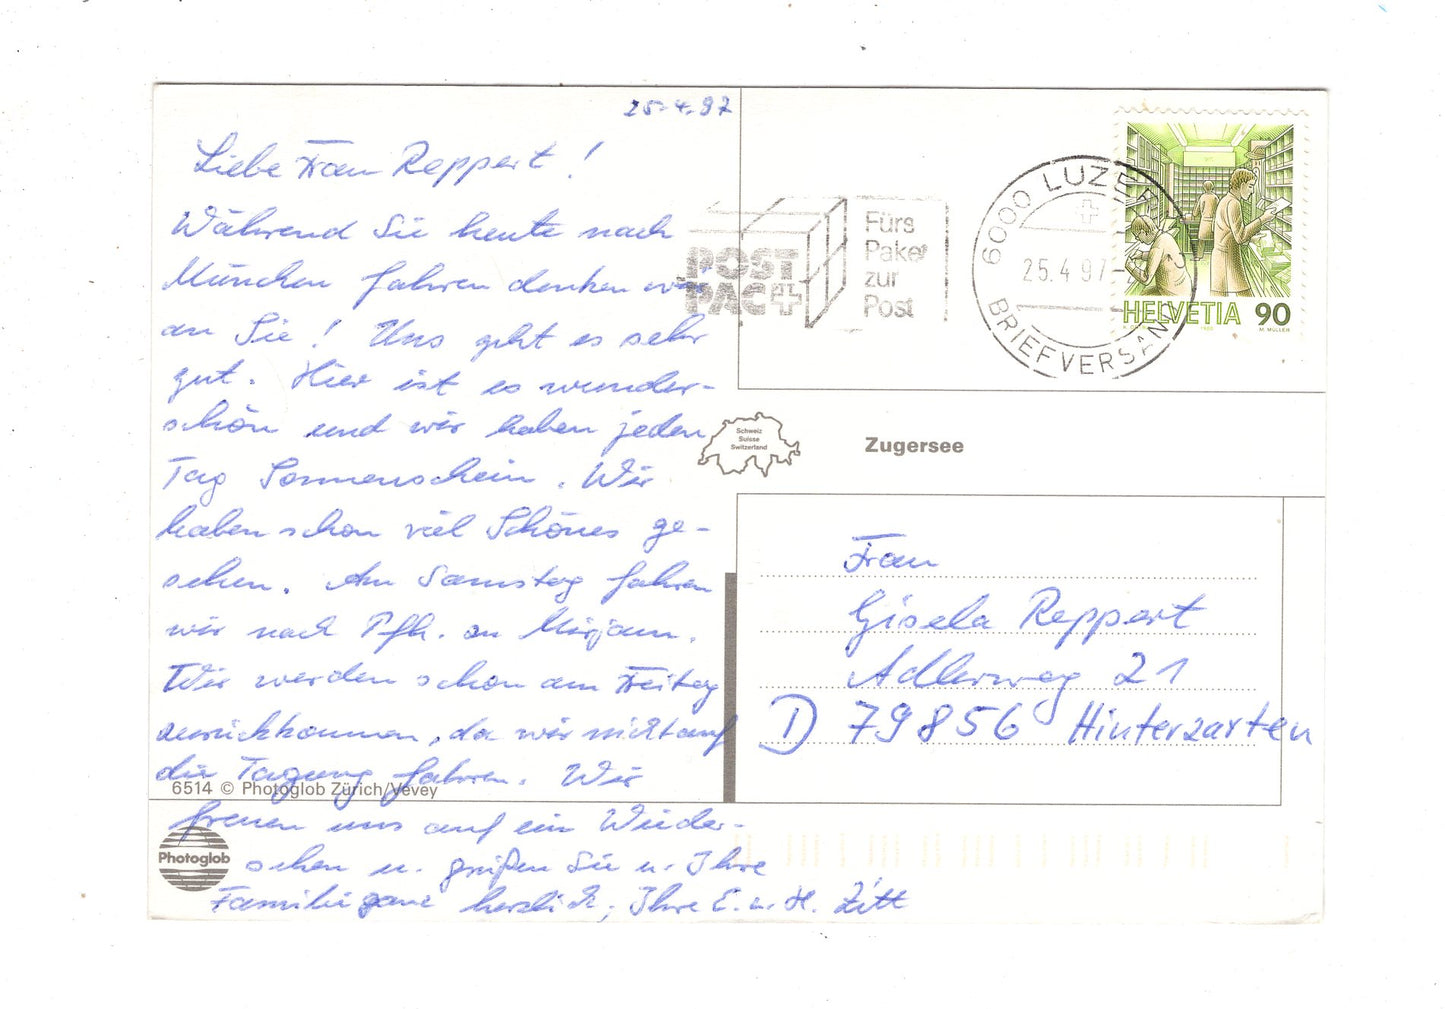 25.4.97
Liebe Frau Reppert!
Während Sie heute nach
München fahren denken wir
an Sie! Uns geht es sehr
gut. Hier ist es wunder-
schön und wir haben jeden
Tag Sonnenschein. Wir
haben schon viel Schönes ge-
sehen. Am Samstag fahren
wir nach Pfh. zu Mirjam.
Wir werden schon am Freitag
zurückkommen, da wir nicht auf
die Tagung fahren. Wir
freuen uns auf ein Wieder-
sehen u. grüßen Sie u. Ihre
Familie ganz herzlich, Ihre E. u. H. Zitt
6514 © Photoglob Zürich/Vevey
Photoglob
POST
PAC
Fürs
Paket
zur
Post
6000 LUZERN
25.4.97
BRIEFVERSAND
HELVETIA 90
M. MÜLLER
Schweiz
Suisse
Switzerland
Zugersee
Frau
Gisela Reppert
Adlerweg 21
D 79856 Hinterzarten